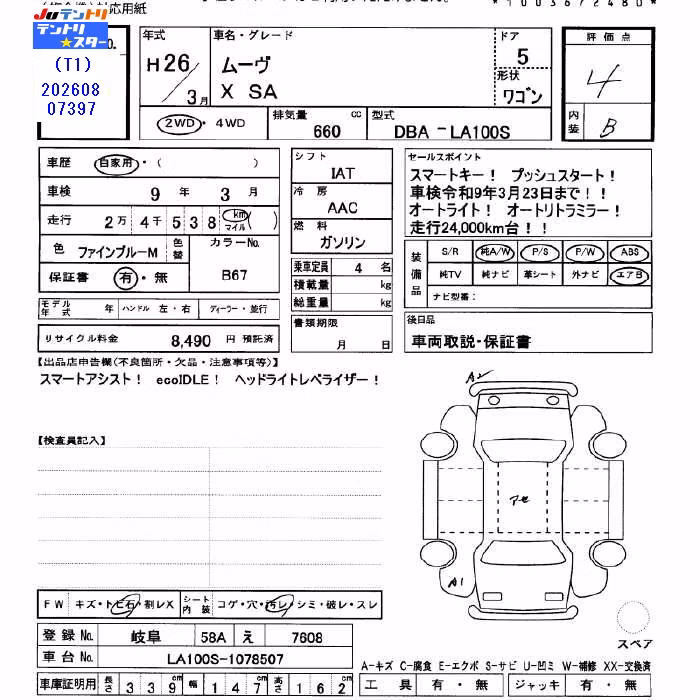 対応用紙
*10036724​80*
JUテントリ
テントリ
★スター
No.
(T1)
202608
07397
年式 車名・グレード ドア 評価点
H26 ムーヴ 5 4
3月 X SA 形状 ワゴン
内装 B
2WD・4WD 排気量 660 cc 型式 DBA-LA100S
車歴 自家用・( )
車検 9年 3月
走行 2万4千538 km マイル ( )
色 ファインブルーM 色替 カラーNo. B67
保証書 有・無
シフト IAT
冷房 AAC
燃料 ガソリン
乗車定員 4 名
積載量 kg
総重量 kg
セールスポイント
スマートキー! プッシュスタート!
車検令和9年3月23日まで!!
オートライト! オートリトラミラー!
走行24,000km台!!
装備品 S/R 純A/W P/S P/W ABS
純TV 純ナビ 革シート 外ナビ エアB
ナビ型番:
モデル年式 年 ハンドル 左・右 ディーラー・並行
リサイクル料金 8,490 円 預託済
書類期限 月 日
後日品
車両取説・保証書
【出品店申告欄(不良箇所・欠品・注意事項等)】
スマートアシスト! ecoIDLE! ヘッドライトレベライザー!
【検査員記入】
アセ
A1
FW キズ・トビ石・割レX シート内装 コゲ・穴・汚レ・シミ・破レ・スレ
登録No. 岐阜 58A え 7608
車台No. LA100S-1078507
車庫証明用 長さ 339cm 幅 147cm 高さ 162cm
スペア
A-キズ C-腐食 E-エクボ S-サビ U-凹ミ W-補修 XX-交換済
工具 有・無 ジャッキ 有・無